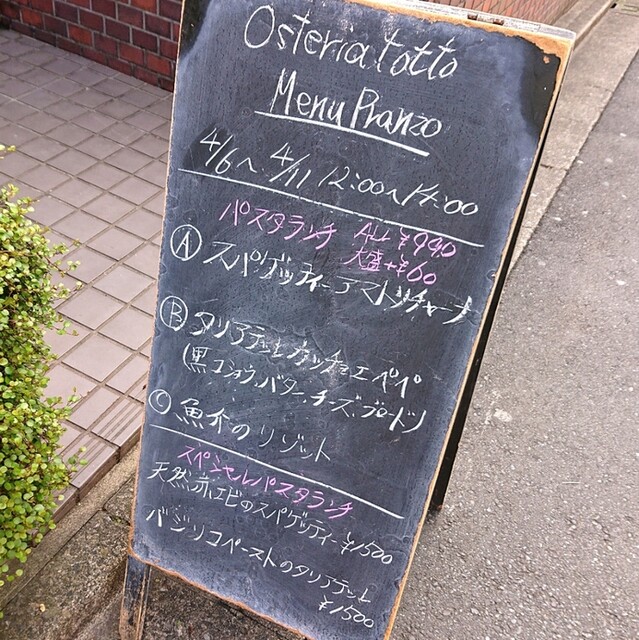 Osteria totto
Menu Pranzo
4/6〜4/11 12:00〜14:00
パスタランチ ALL ¥990
大盛+¥60
Ⓐ スパゲッティーアマトリチャーナ
Ⓑ タリアテッレカッチョエペペ
(黒コショウ、バター、チーズ、ブロード)
Ⓒ 魚介のリゾット
スペシャルパスタランチ
天然赤エビのスパゲッティー ¥1500
バジリコペーストのタリアテッレ
¥1500